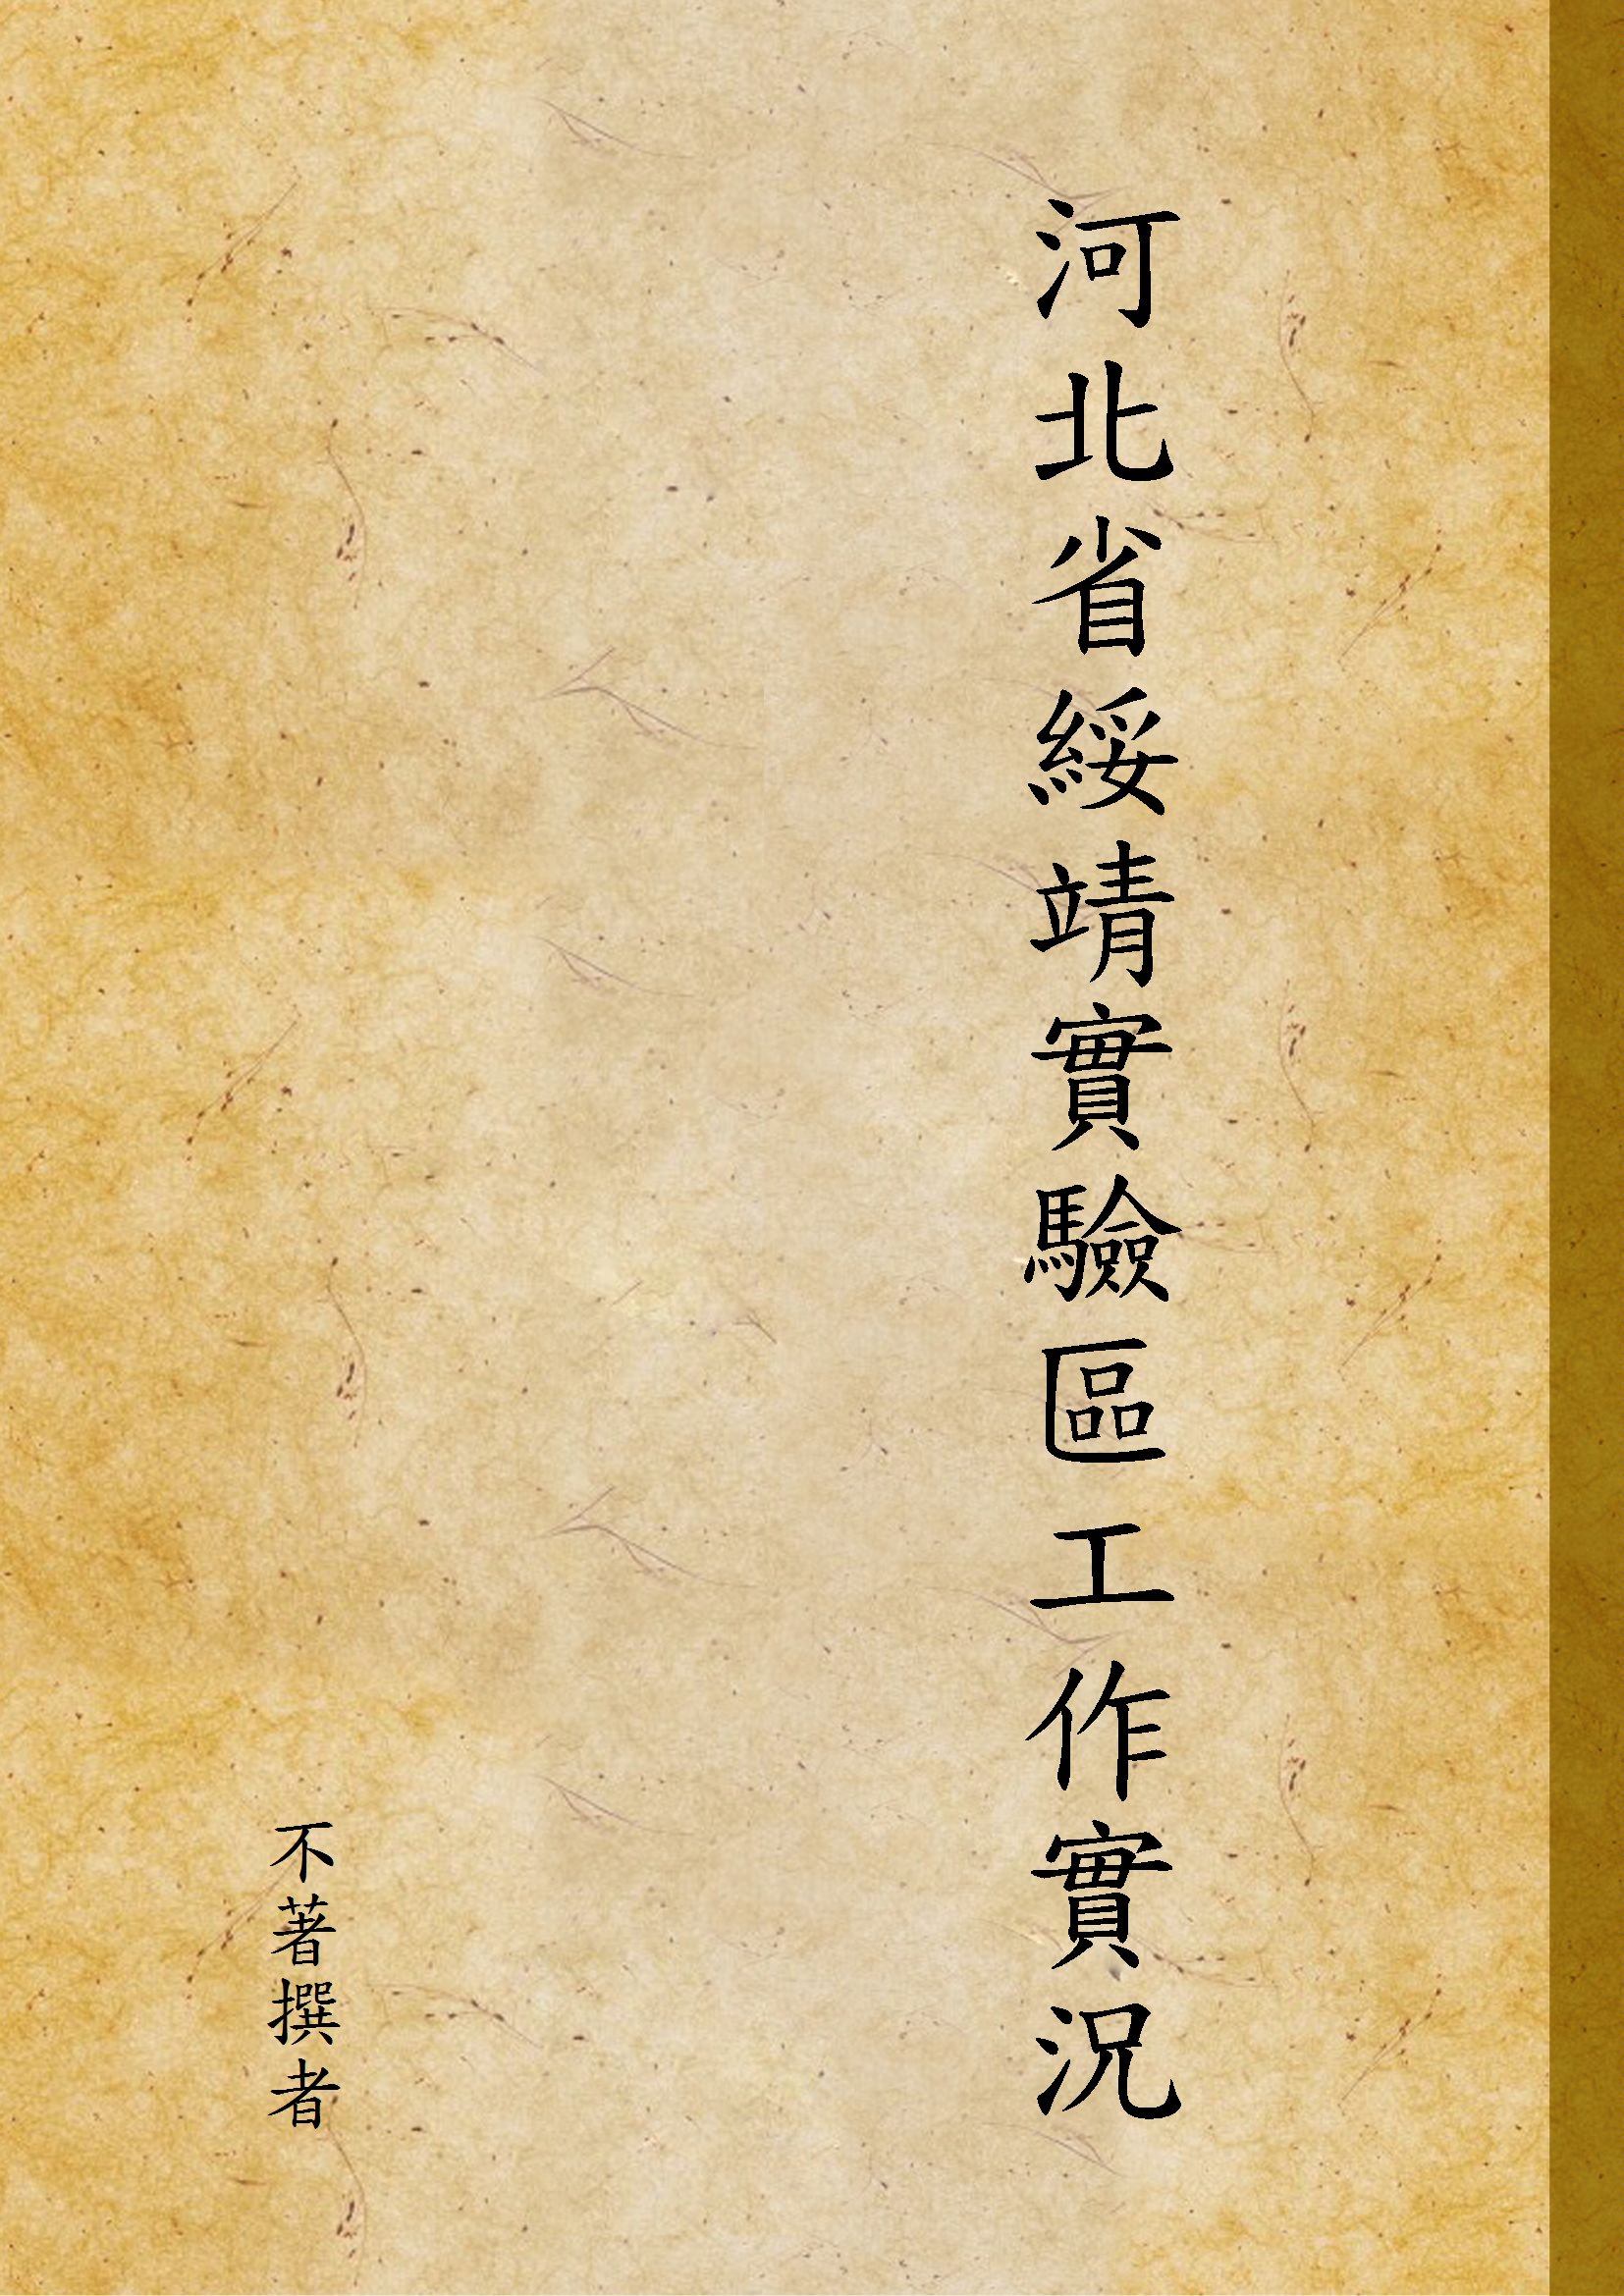 河北省綏靖實驗區工作實況
不著撰者